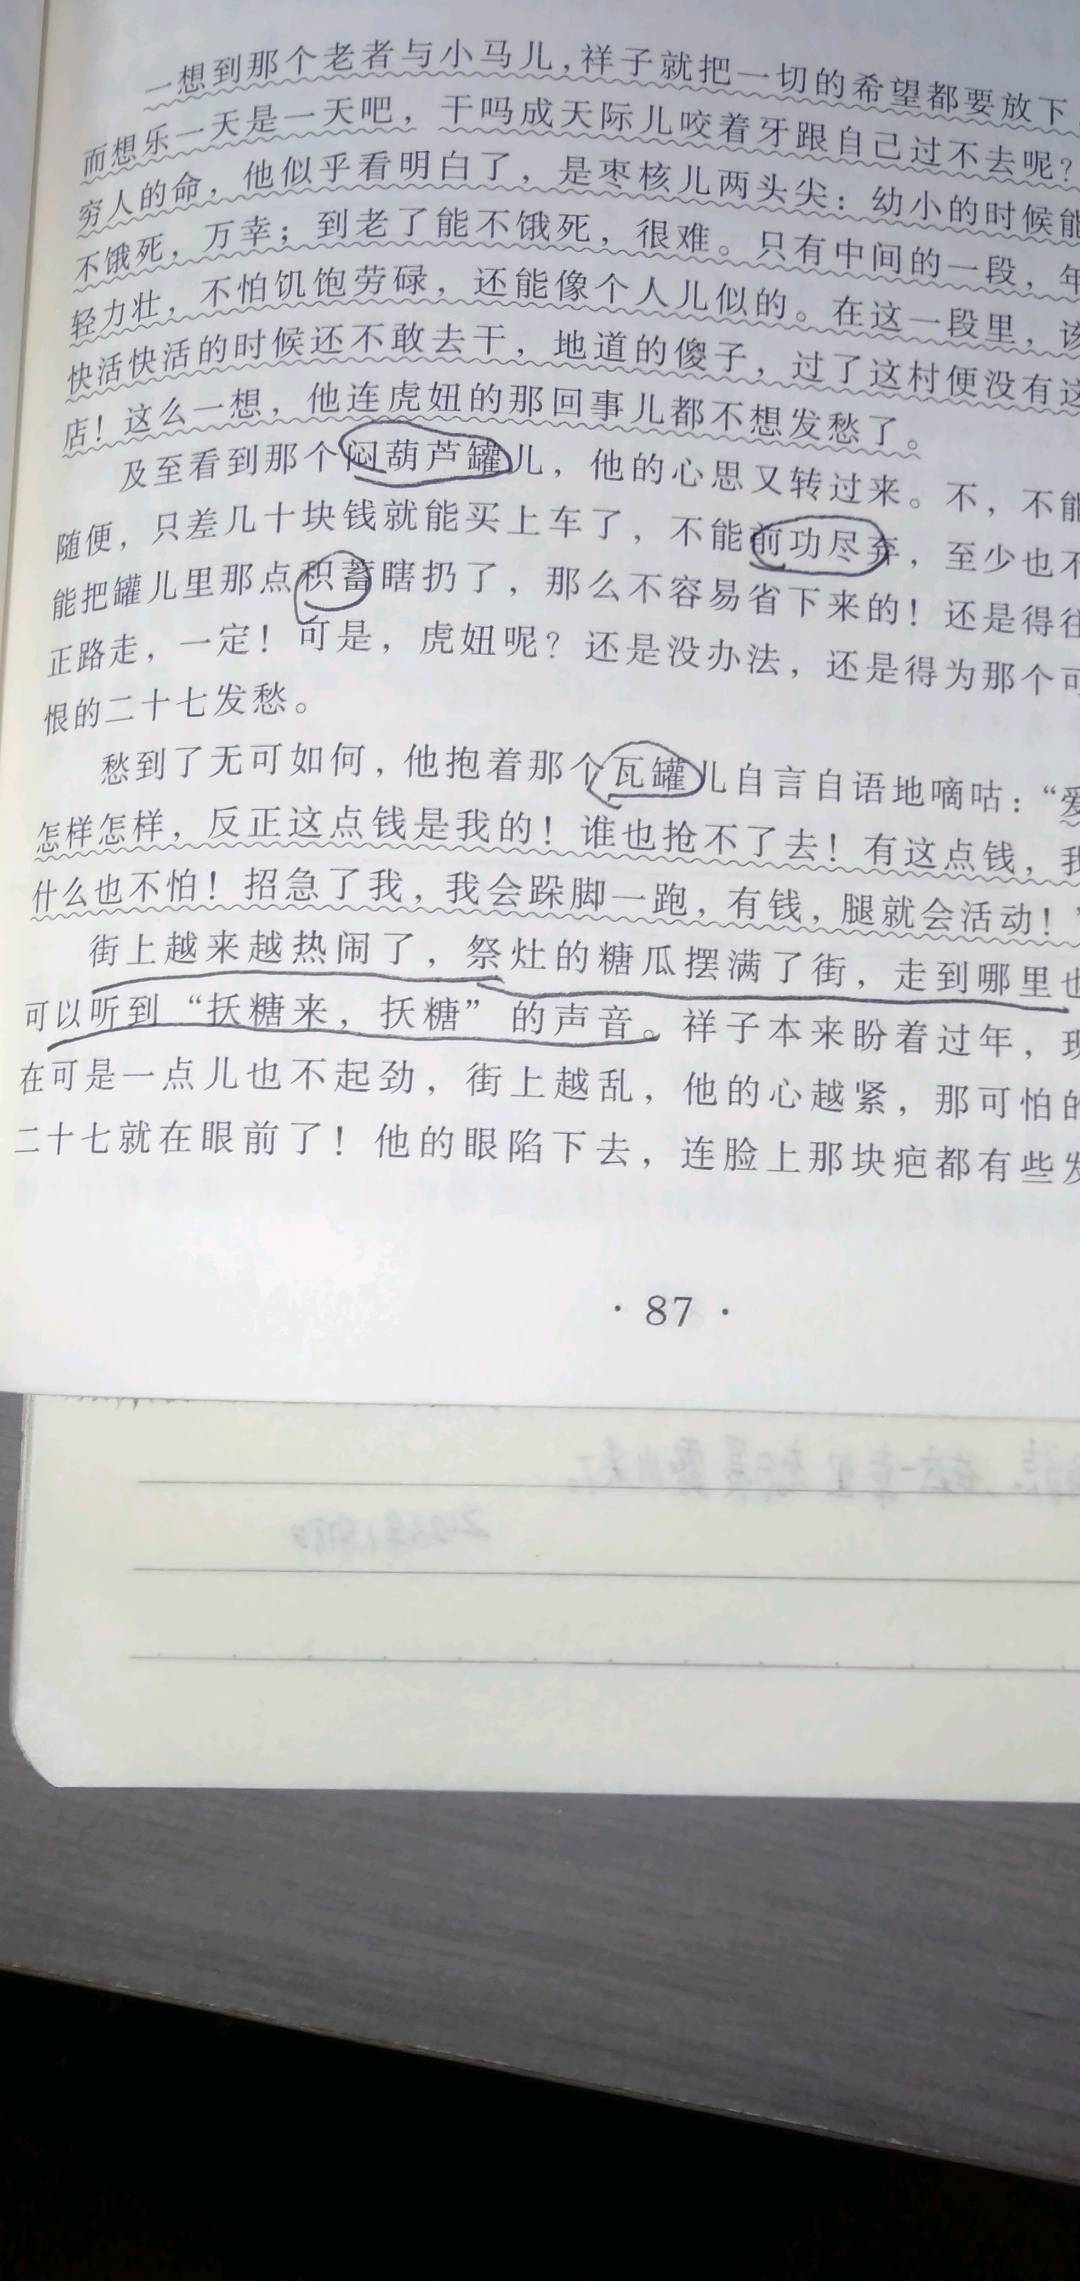 一想到那个老者与小马儿，祥子就把一切的希望都要放下，
而想乐一天是一天吧，干吗成天际儿咬着牙跟自己过不去呢？
穷人的命，他似乎看明白了，是枣核儿两头尖：幼小的时候能
不饿死，万幸；到老了能不饿死，很难。只有中间的一段，年
轻力壮，不怕饥饱劳碌，还能像个人儿似的。在这一段里，该
快活快活的时候还不敢去干，地道的傻子，过了这村便没有这
店！这么一想，他连虎妞的那回事儿都不想发愁了。
及至看到那个闷葫芦罐儿，他的心思又转过来。不，不能
随便，只差几十块钱就能买上车了，不能前功尽弃，至少也不
能把罐儿里那点积蓄瞎扔了，那么不容易省下来的！还是得往
正路走，一定！可是，虎妞呢？还是没办法，还是得为那个可
恨的二十七发愁。
愁到了无可如何，他抱着那个瓦罐儿自言自语地嘀咕：“爱
怎样怎样，反正这点钱是我的！谁也抢不了去！有这点钱，我
什么也不怕！招急了我，我会跺脚一跑，有钱，腿就会活动！”
街上越来越热闹了，祭灶的糖瓜摆满了街，走到哪里也
可以听到“扷糖来，扷糖”的声音。祥子本来盼着过年，现
在可是一点儿也不起劲，街上越乱，他的心越紧，那可怕的
二十七就在眼前了！他的眼陷下去，连脸上那块疤都有些发
· 87 ·